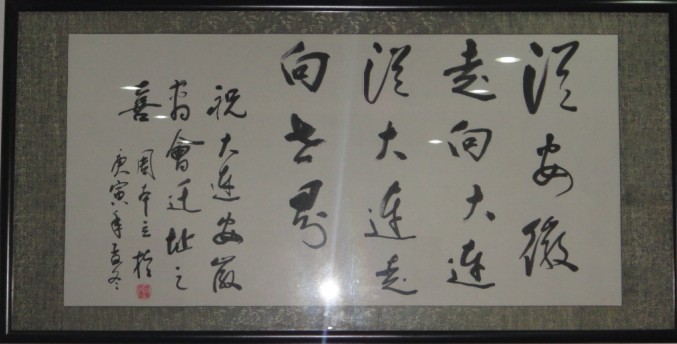 從安徽
走向大連
從大連走
向世界
祝大連安徽
商會迁址之
喜
周本立
庚寅年冬